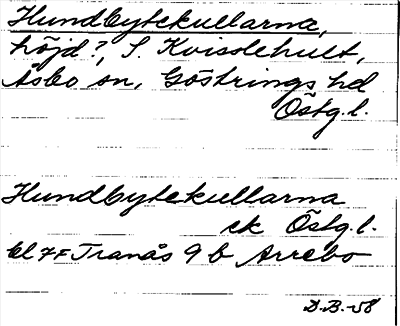 Hundbytekullarna,
höjd?, S. Kvisslehult,
Åsbo sn, Göstrings hd
Östg.l.
Hundbytekullarna
ek Östg.l.
bl 7F Tranås 9 b Arrebo
D.B.-58